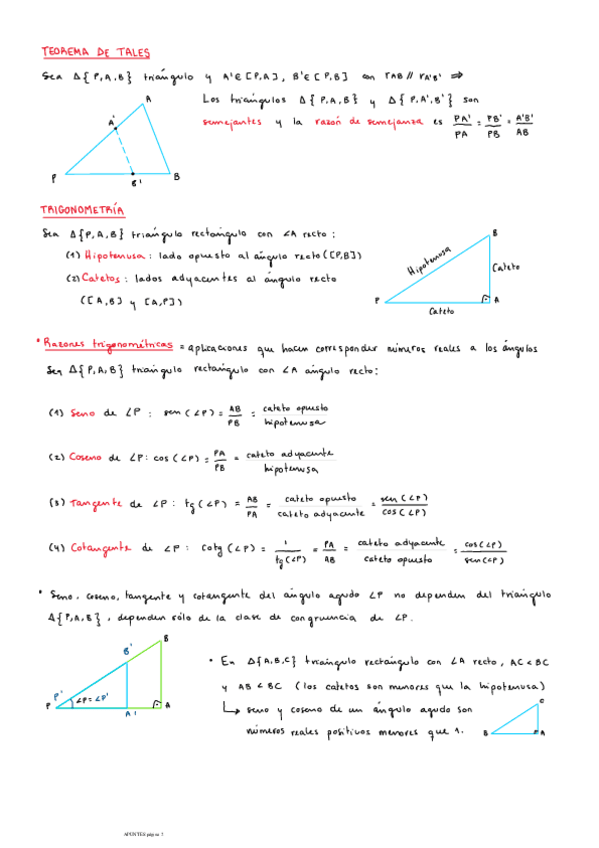 TEOREMA DE TALES
Sea Δ{P,A,B} triángulo y A'∈[P,A], B'∈[P,B] con rAB // rA'B' ⇒
Los triángulos Δ{P,A,B} y Δ{P,A',B'} son
semejantes y la razón de semejanza es PA'/PA = PB'/PB = A'B'/AB
A
A'
P
B'
B
TRIGONOMETRÍA
Sea Δ{P,A,B} triángulo rectángulo con ∠A recto:
(1) Hipotenusa: lado opuesto al ángulo recto ([P,B])
(2) Catetos: lados adyacentes al ángulo recto
([A,B] y [A,P])
B
Hipotenusa
Cateto
P
A
Cateto
• Razones trigonométricas = aplicaciones que hacen corresponder números reales a los ángulos
Sea Δ{P,A,B} triángulo rectángulo con ∠A ángulo recto:
(1) Seno de ∠P: sen(∠P) = AB/PB = cateto opuesto/hipotenusa
(2) Coseno de ∠P: cos(∠P) = PA/PB = cateto adyacente/hipotenusa
(3) Tangente de ∠P: tg(∠P) = AB/PA = cateto opuesto/cateto adyacente = sen(∠P)/cos(∠P)
(4) Cotangente de ∠P: cotg(∠P) = 1/tg(∠P) = PA/AB = cateto adyacente/cateto opuesto = cos(∠P)/sen(∠P)
• Seno, coseno, tangente y cotangente del ángulo agudo ∠P no dependen del triángulo
Δ{P,A,B}, dependen sólo de la clase de congruencia de ∠P.
B
B'
P'
P
∠P=∠P'
A'
A
• En Δ{A,B,C} triángulo rectángulo con ∠A recto, AC < BC
y AB < BC (los catetos son menores que la hipotenusa)
↳ seno y coseno de un ángulo agudo son
números reales positivos menores que 1.
C
B
A
APUNTES página 1